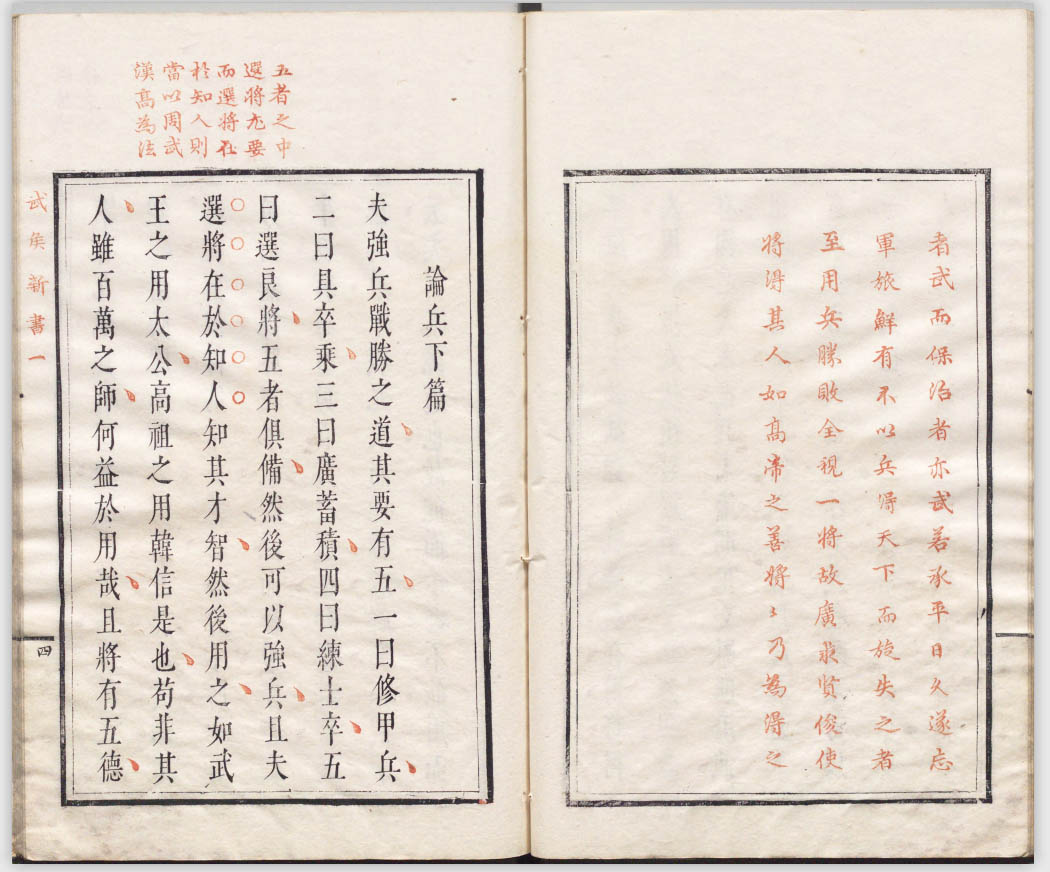 者武而保治者亦武若承平日久遂忘
軍旅鮮有不以兵得天下而旋失之者
至用兵勝敗全視一將故廣求賢俊使
將得其人如高帝之善將〻乃為得之
五者之中
選將尤要
而選將在
於知人則
當以周武
漢高為法
論兵下篇
夫強兵戰勝之道其要有五一曰修甲兵
二曰具卒乘三曰廣蓄積四曰練士卒五
曰選良將五者俱備然後可以強兵且夫
選將在於知人知其才智然後用之如武
王之用太公高祖之用韓信是也苟非其
人雖百萬之師何益於用哉且將有五德
武矦新書一
四